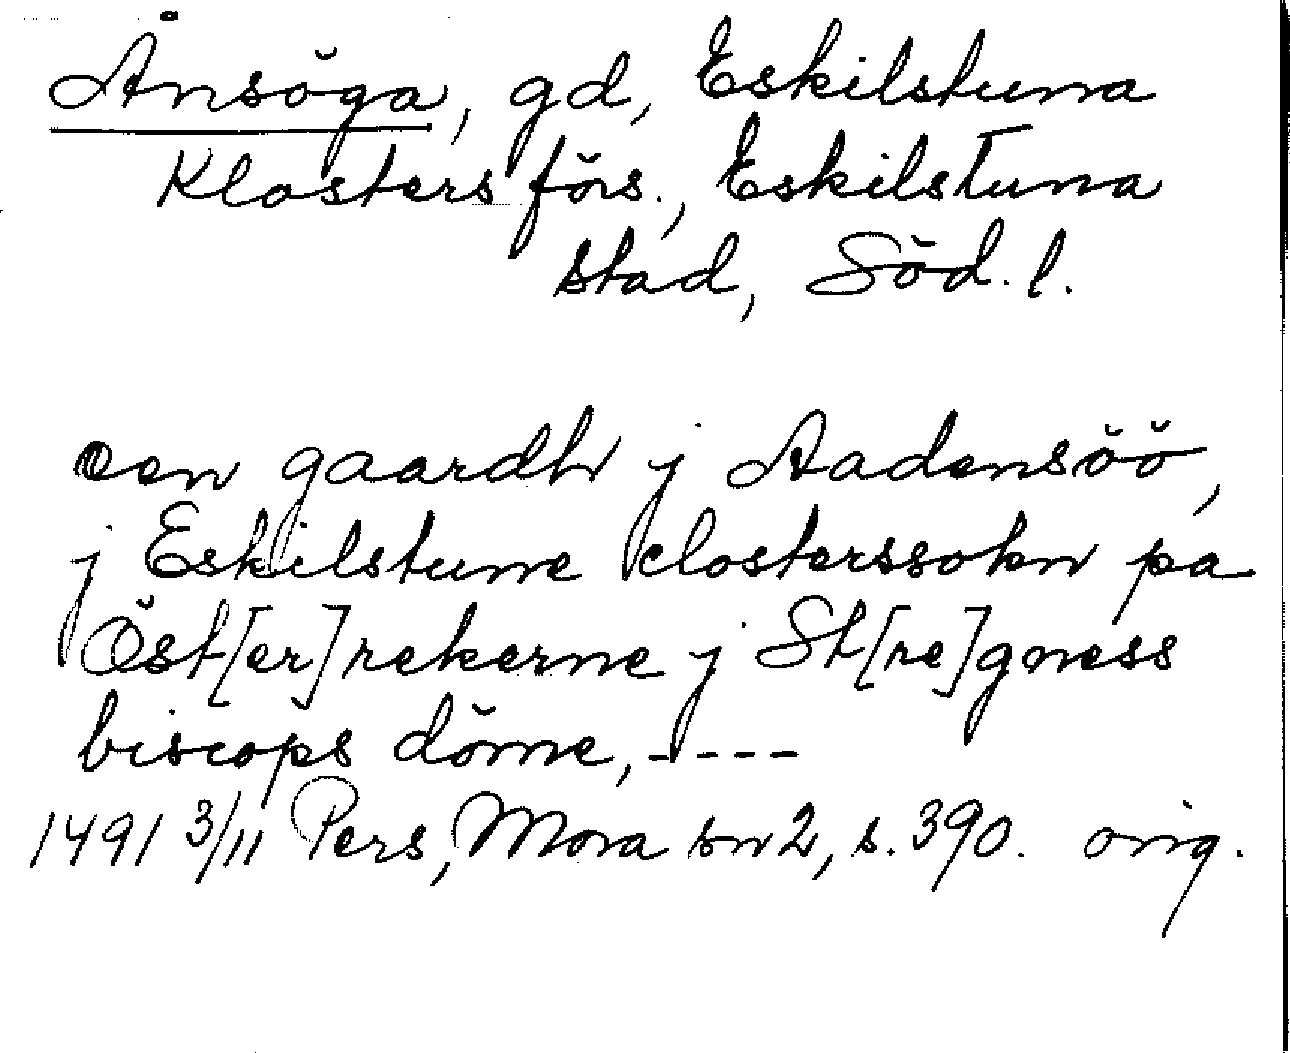 Ånsöga, gd, Eskilstuna
Klosters förs., Eskilstuna
stad, Söd. l.
een gaardh j Aadensöö,
j Eskilstune closterssokn pa
Öst[er]rekerne j St[re]gness
biscops döme, ----
1491 3/11 Pers, Mora sn 2, s. 390. orig.